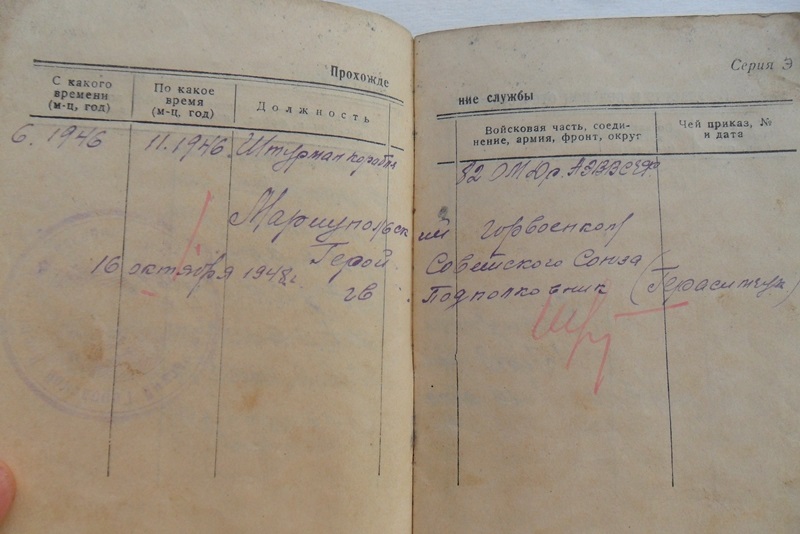 Прохожде
С какого времени (м-ц, год)
По какое время (м-ц, год)
Должность
6. 1946
11. 1946.
Штурман корабля
Мариупольск
Герой
16 октября 1948 г.
гв.
Серия Э
ние службы
Войсковая часть, соеди-
нение, армия, фронт, округ
Чей приказ, №
и дата
82
ий Горвоенком
Советского Союза
Подполковник (Герасимчук)